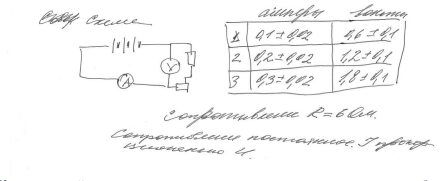 схеме
амперы вольты
1 0,1±0,02 0,6±0,1
2 0,2±0,02 1,2±0,1
3 0,3±0,02 1,8±0,1
V
A
Сопротивление R=6 Ом.
Сопротивление постоянное. I пропор
ционально U.